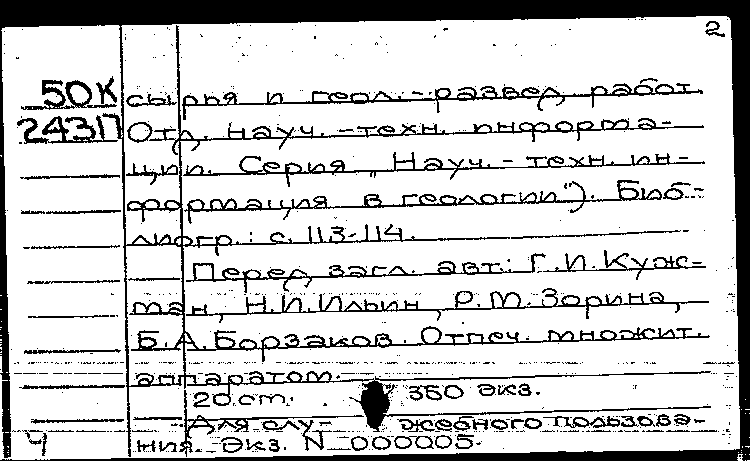 2
50К сырья и геол.-развед. работ.
243П Отд. науч.-техн. информа-
ции. Серия „Науч.-техн. ин-
формация в геологии"). Биб-
лиогр.: с. 113-114.
Перед загл. авт.: Г.И. Куж-
ман, Н.И. Ильин, Р.М. Зорина,
Б.А. Борзаков. Отпеч. множит.
аппаратом.
20 cm. 350 экз.
Для слу- жебного пользова-
Ч ния. Экз. N 000005.